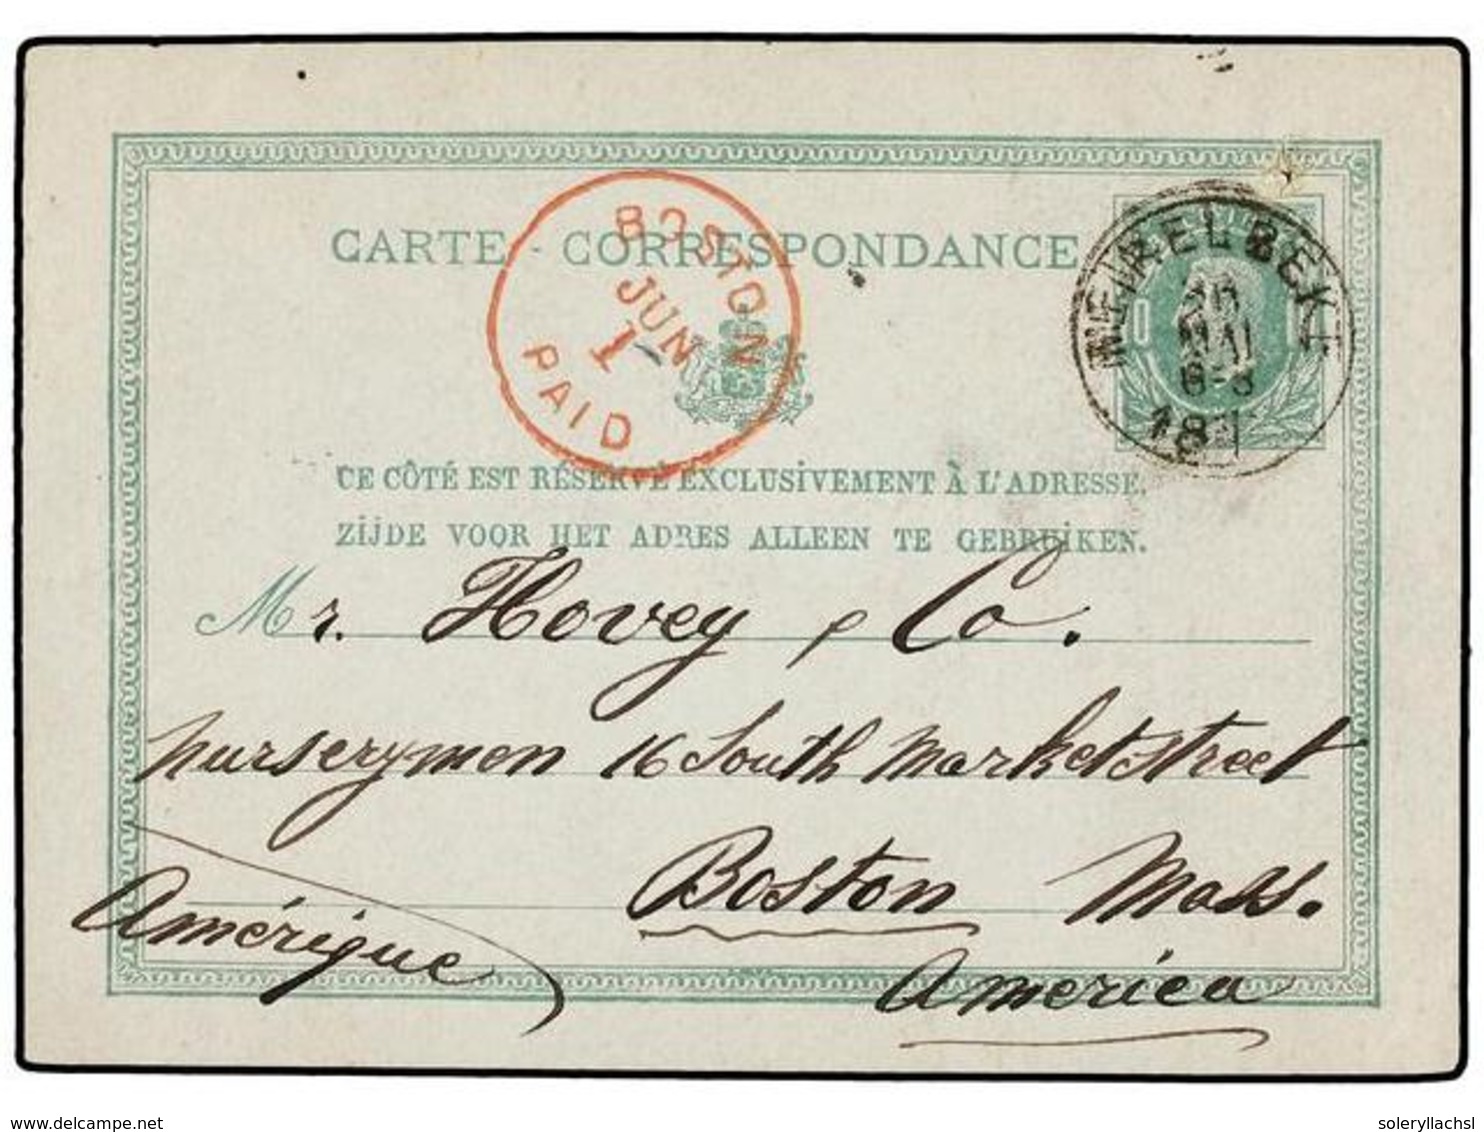 CARTE - CORRESPONDANCE
BOSTON
JUN
1
PAID
MEIRELBEKE
MAI
6-8
CE CÔTÉ EST RÉSERVÉ EXCLUSIVEMENT À L'ADRESSE.
ZIJDE VOOR HET ADRES ALLEEN TE GEBRUIKEN.
Mr. Hovey & Co.
nurserymen 16 South Market street
Boston Mass.
Amérique
America
www.delcampe.net
soleryllachsl